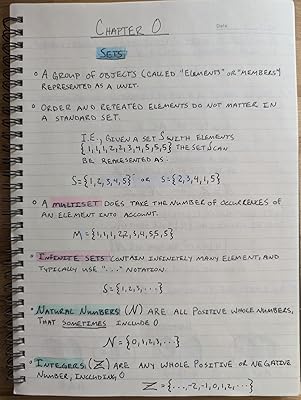 Chapter 0
Date
Sets
• A group of objects (called "elements" or "members")
represented as a unit.
• Order and repeated elements do not matter in
a standard set.
I.E., given a set S with elements
{1,1,1,2,2,3,4,5,5,5} the set S can
be represented as..
S={1,2,3,4,5} or S={2,3,4,1,5}
• A multiset does take the number of occurences of
an element into account.
M={1,1,1,2,2,3,4,5,5,5}
• Infinite sets contain infinitely many element, and
typically use "..." notation.
S={1,2,3,...}
• Natural Numbers (N) are all positive whole numbers,
that sometimes include 0
N={0,1,2,3,...}
• Integers (Z) are any whole positive or negative
number, including 0
Z={...,-2,-1,0,1,2,...}